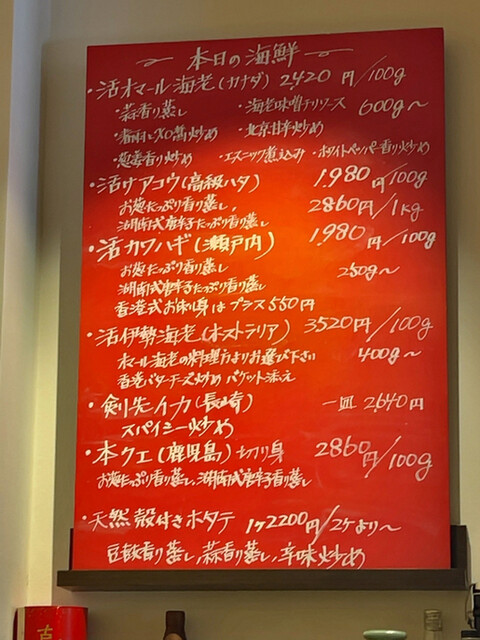 本日の海鮮
・活オマール海老(カナダ) 2,420円/100g
・蒜香り蒸し ・海老味噌チリソース 600g〜
・XO醬炒め ・北京甘辛炒め
・葱香り炒め ・エスニック煮込み ・ホワイトペッパー香り炒め
・活サアコウ(高級ハタ) 1,980円/100g
お葱たっぷり香り蒸し, 2860円/1kg
湖南式唐辛子たっぷり香り蒸し
・活カワハギ(瀬戸内) 1,980円/100g
お葱たっぷり香り蒸し 250g〜
湖南式唐辛子たっぷり香り蒸し
香港式お刺し身はプラス550円
・活伊勢海老(オーストラリア) 3520円/100g
オマール海老の料理方よりお選び下さい 400g〜
香港バターチーズ炒め バケット添え
・剣先イカ(長崎) 一皿 2,640円
スパイシー炒め
・本クエ(鹿児島)切り身 2860円/100g
お葱たっぷり香り蒸し,湖南式唐辛子香り蒸し
・天然殻付きホタテ 1ケ2200円/2ケより〜
豆鼓香り蒸し,蒜香り蒸し,辛味炒め
吉